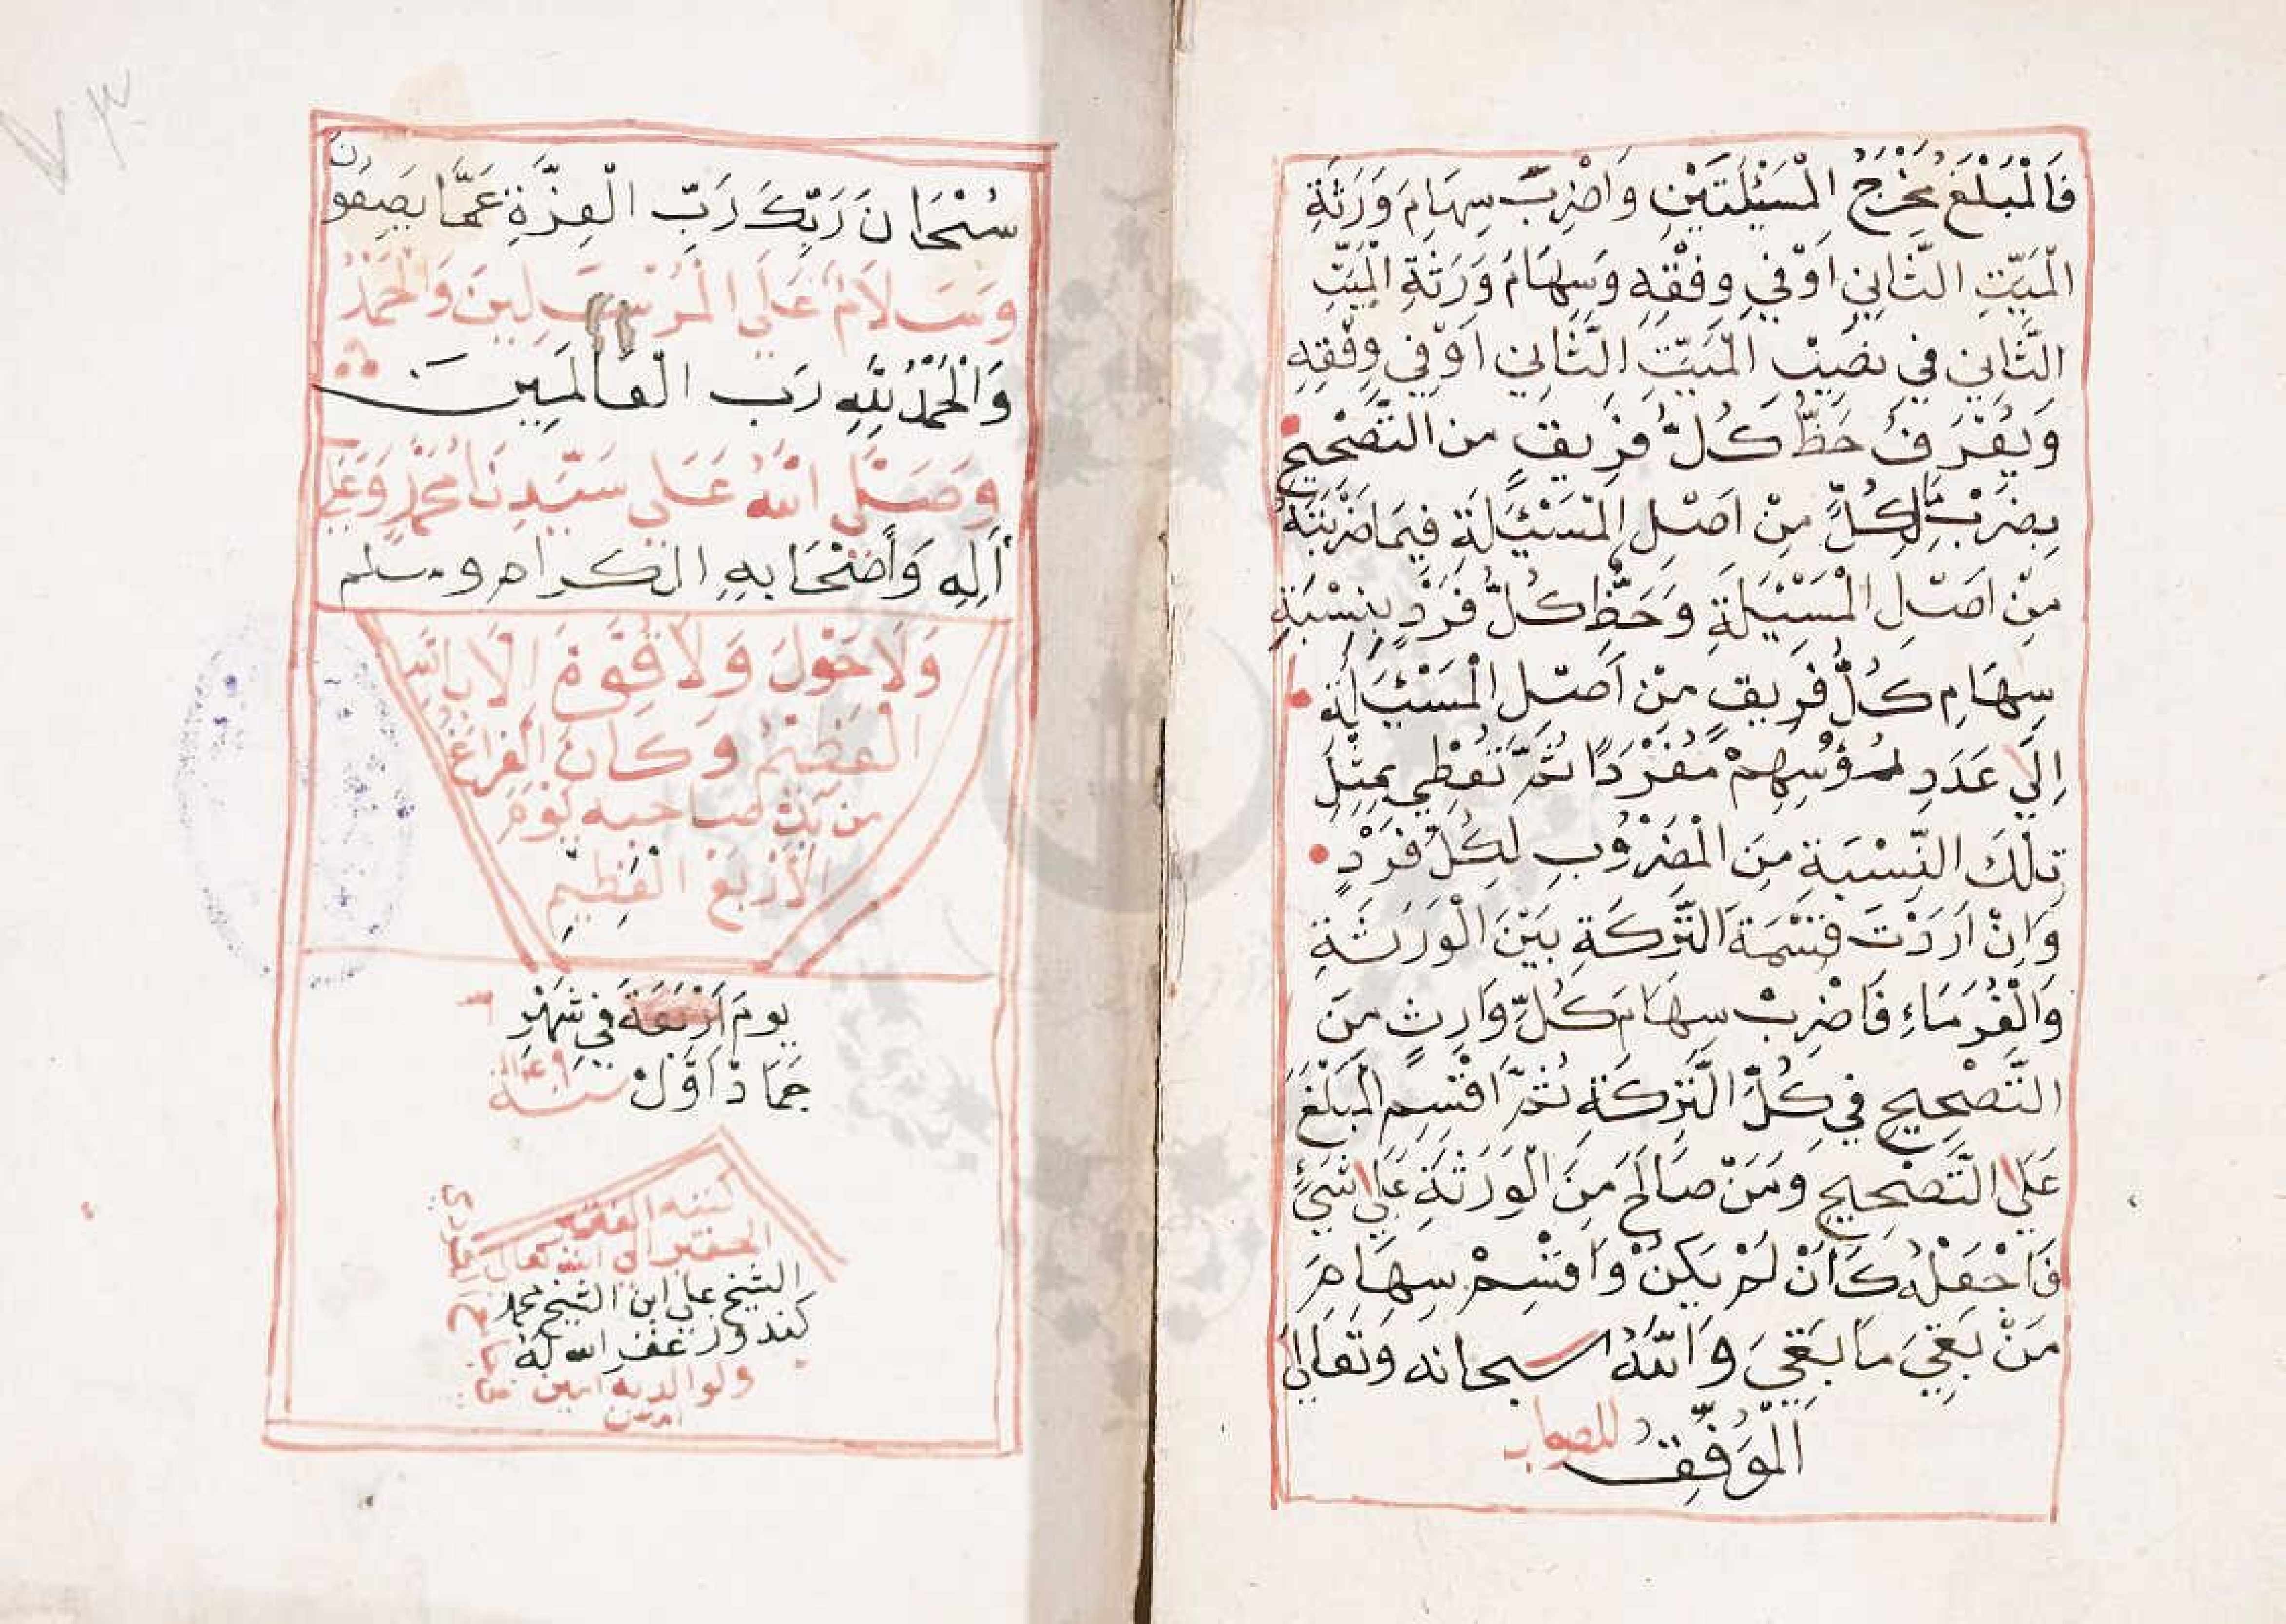 فَالْمَبْلَغُ مَخْرَجُ الْمَسْئِلَتَيْنِ وَاضْرِبْ سِهَامَ وَرَثَةِ
الْمَيِّتِ الثَّانِي اَوْفِي وِفْقِهِ وَسِهَامُ وَرَثَةِ الْمَيِّتِ
الثَّانِي فِي نَصِيبِ الْمَيِّتِ الثَّانِي اَوْفِي وِفْقِهِ
وَيُعْرَفُ حَظُّ كُلِّ فَرِيقٍ مِنَ التَّصْحِيحِ
بِضَرْبِ مَا لِكُلٍّ مِنْ اَصْلِ الْمَسْئَلَةِ فِيمَا ضَرَبْتَهُ
مِنْ اَصْلِ الْمَسْئَلَةِ وَحَظُّ كُلِّ فَرْدٍ بِنِسْبَةِ
سِهَامِ كُلِّ فَرِيقٍ مِنْ اَصْلِ الْمَسْئَلَةِ
اِلَى عَدَدِ رُؤُسِهِمْ مُفْرَدًا ثُمَّ تُعْطِي بِمِثْلِ
تِلْكَ النِّسْبَةِ مِنَ الْمَضْرُوبِ لِكُلِّ فَرْدٍ
وَاِنْ اَرَدْتَ قِسْمَةَ التَّرِكَةِ بَيْنَ الْوَرَثَةِ
وَالْغُرَمَاءِ فَاضْرِبْ سِهَامَ كُلِّ وَارِثٍ مِنَ
التَّصْحِيحِ فِي كُلِّ التَّرِكَةِ ثُمَّ اقْسِمِ الْمَبْلَغَ
عَلَى التَّصْحِيحِ وَمَنْ صَالَحَ مِنَ الْوَرَثَةِ عَلَى شَيْءٍ
فَاجْعَلْهُ كَاَنْ لَمْ يَكُنْ وَاقْسِمْ سِهَامَ
مَنْ بَقِيَ مَا بَقِيَ وَاللّٰهُ سبحانه وَتَعَالَى
الْمُوَفِّقُ للصواب
سُبْحَانَ رَبِّكَ رَبِّ الْعِزَّةِ عَمَّا يَصِفُونَ
وَسَلَامٌ عَلَى الْمُرْسَلِينَ وَالْحَمْدُ
وَالْحَمْدُ لِلّٰهِ رَبِّ الْعَالَمِينَ
وَصَلَّى اللّٰهُ عَلَى سَيِّدِنَا مُحَمَّدٍ وَعَلَى
اَلِهِ وَأَصْحَابِهِ الكرام وسلم
وَلَا حَوْلَ وَلَا قُوَّةَ اِلَّا بِاللّٰهِ
الْعَظِيمُ وَكَانَ الْفَرَاغُ
مِنْ يَدِ صاحبه يَوْمَ
الْاَرْبَعْ الْعَظِيمِ
يومَ اَرْبَعَةَ فِي شَهْرِ
جَمَادْ اَوَّلْ سَنَة
كتبه الفقير
الحقير الى الله تعالى
الشيخ علي ابن الشيخ محمد
كندوز غفر الله له
ولوالديه امين
امين